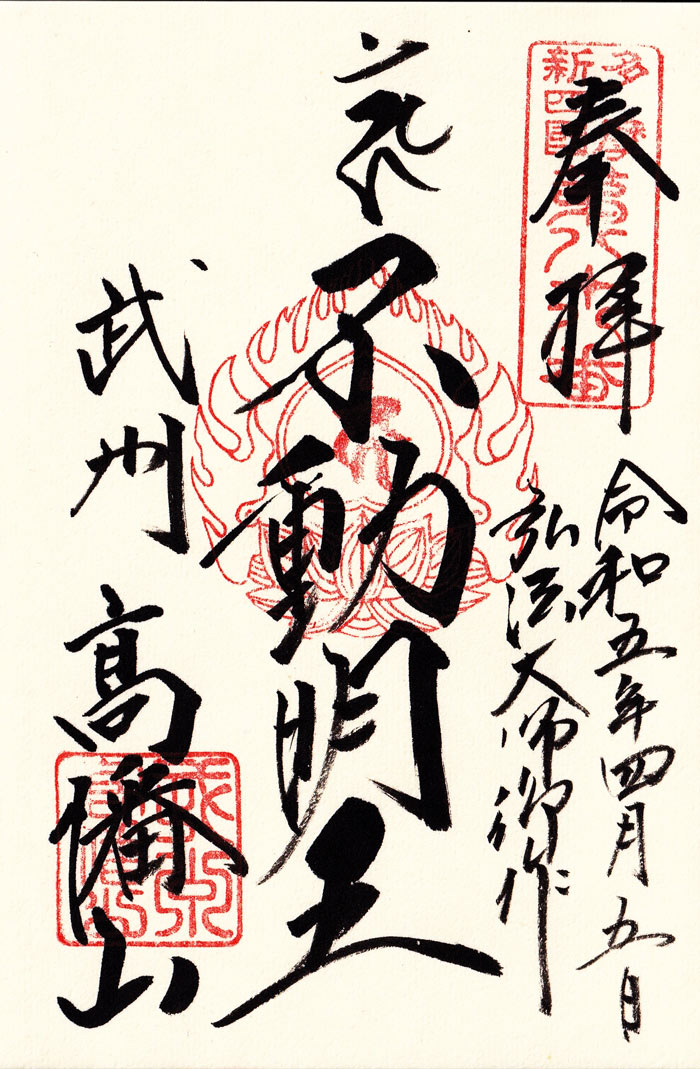 奉拝
多摩
新四国
第八番
令和五年四月五日
弘法大師御作
不動明王
武州
高幡山